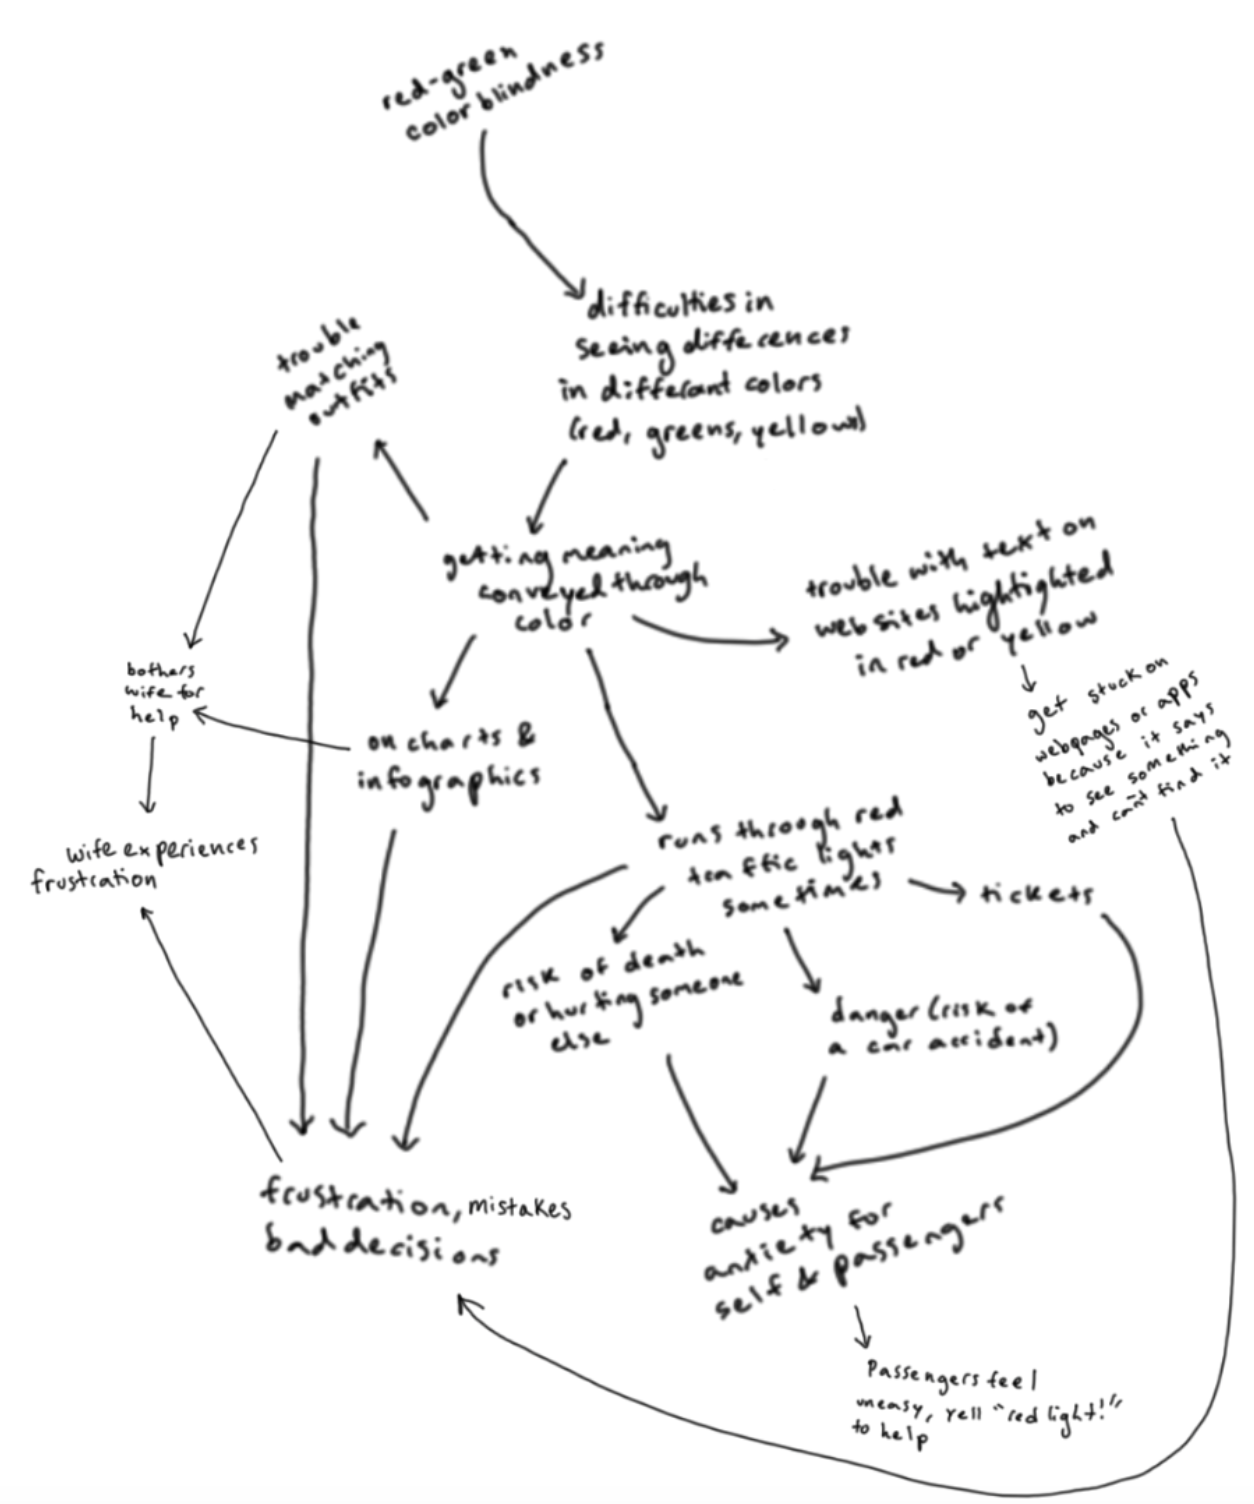 red-green
color blindness
difficulties in
seeing differences
in different colors
(red, greens, yellows)
trouble
matching
outfits
getting meaning
conveyed through
color
trouble with text on
websites highlighted
in red or yellow
get stuck on
webpages or apps
because it says
to see something
and can't find it
bothers
wife for
help
on charts &
infographics
wife experiences
frustration
runs through red
traffic lights
sometimes
tickets
risk of death
or hurting someone
else
danger (risk of
a car accident)
frustration, mistakes
bad decisions
causes
anxiety for
self & passengers
Passengers feel
uneasy, yell "red light!"
to help